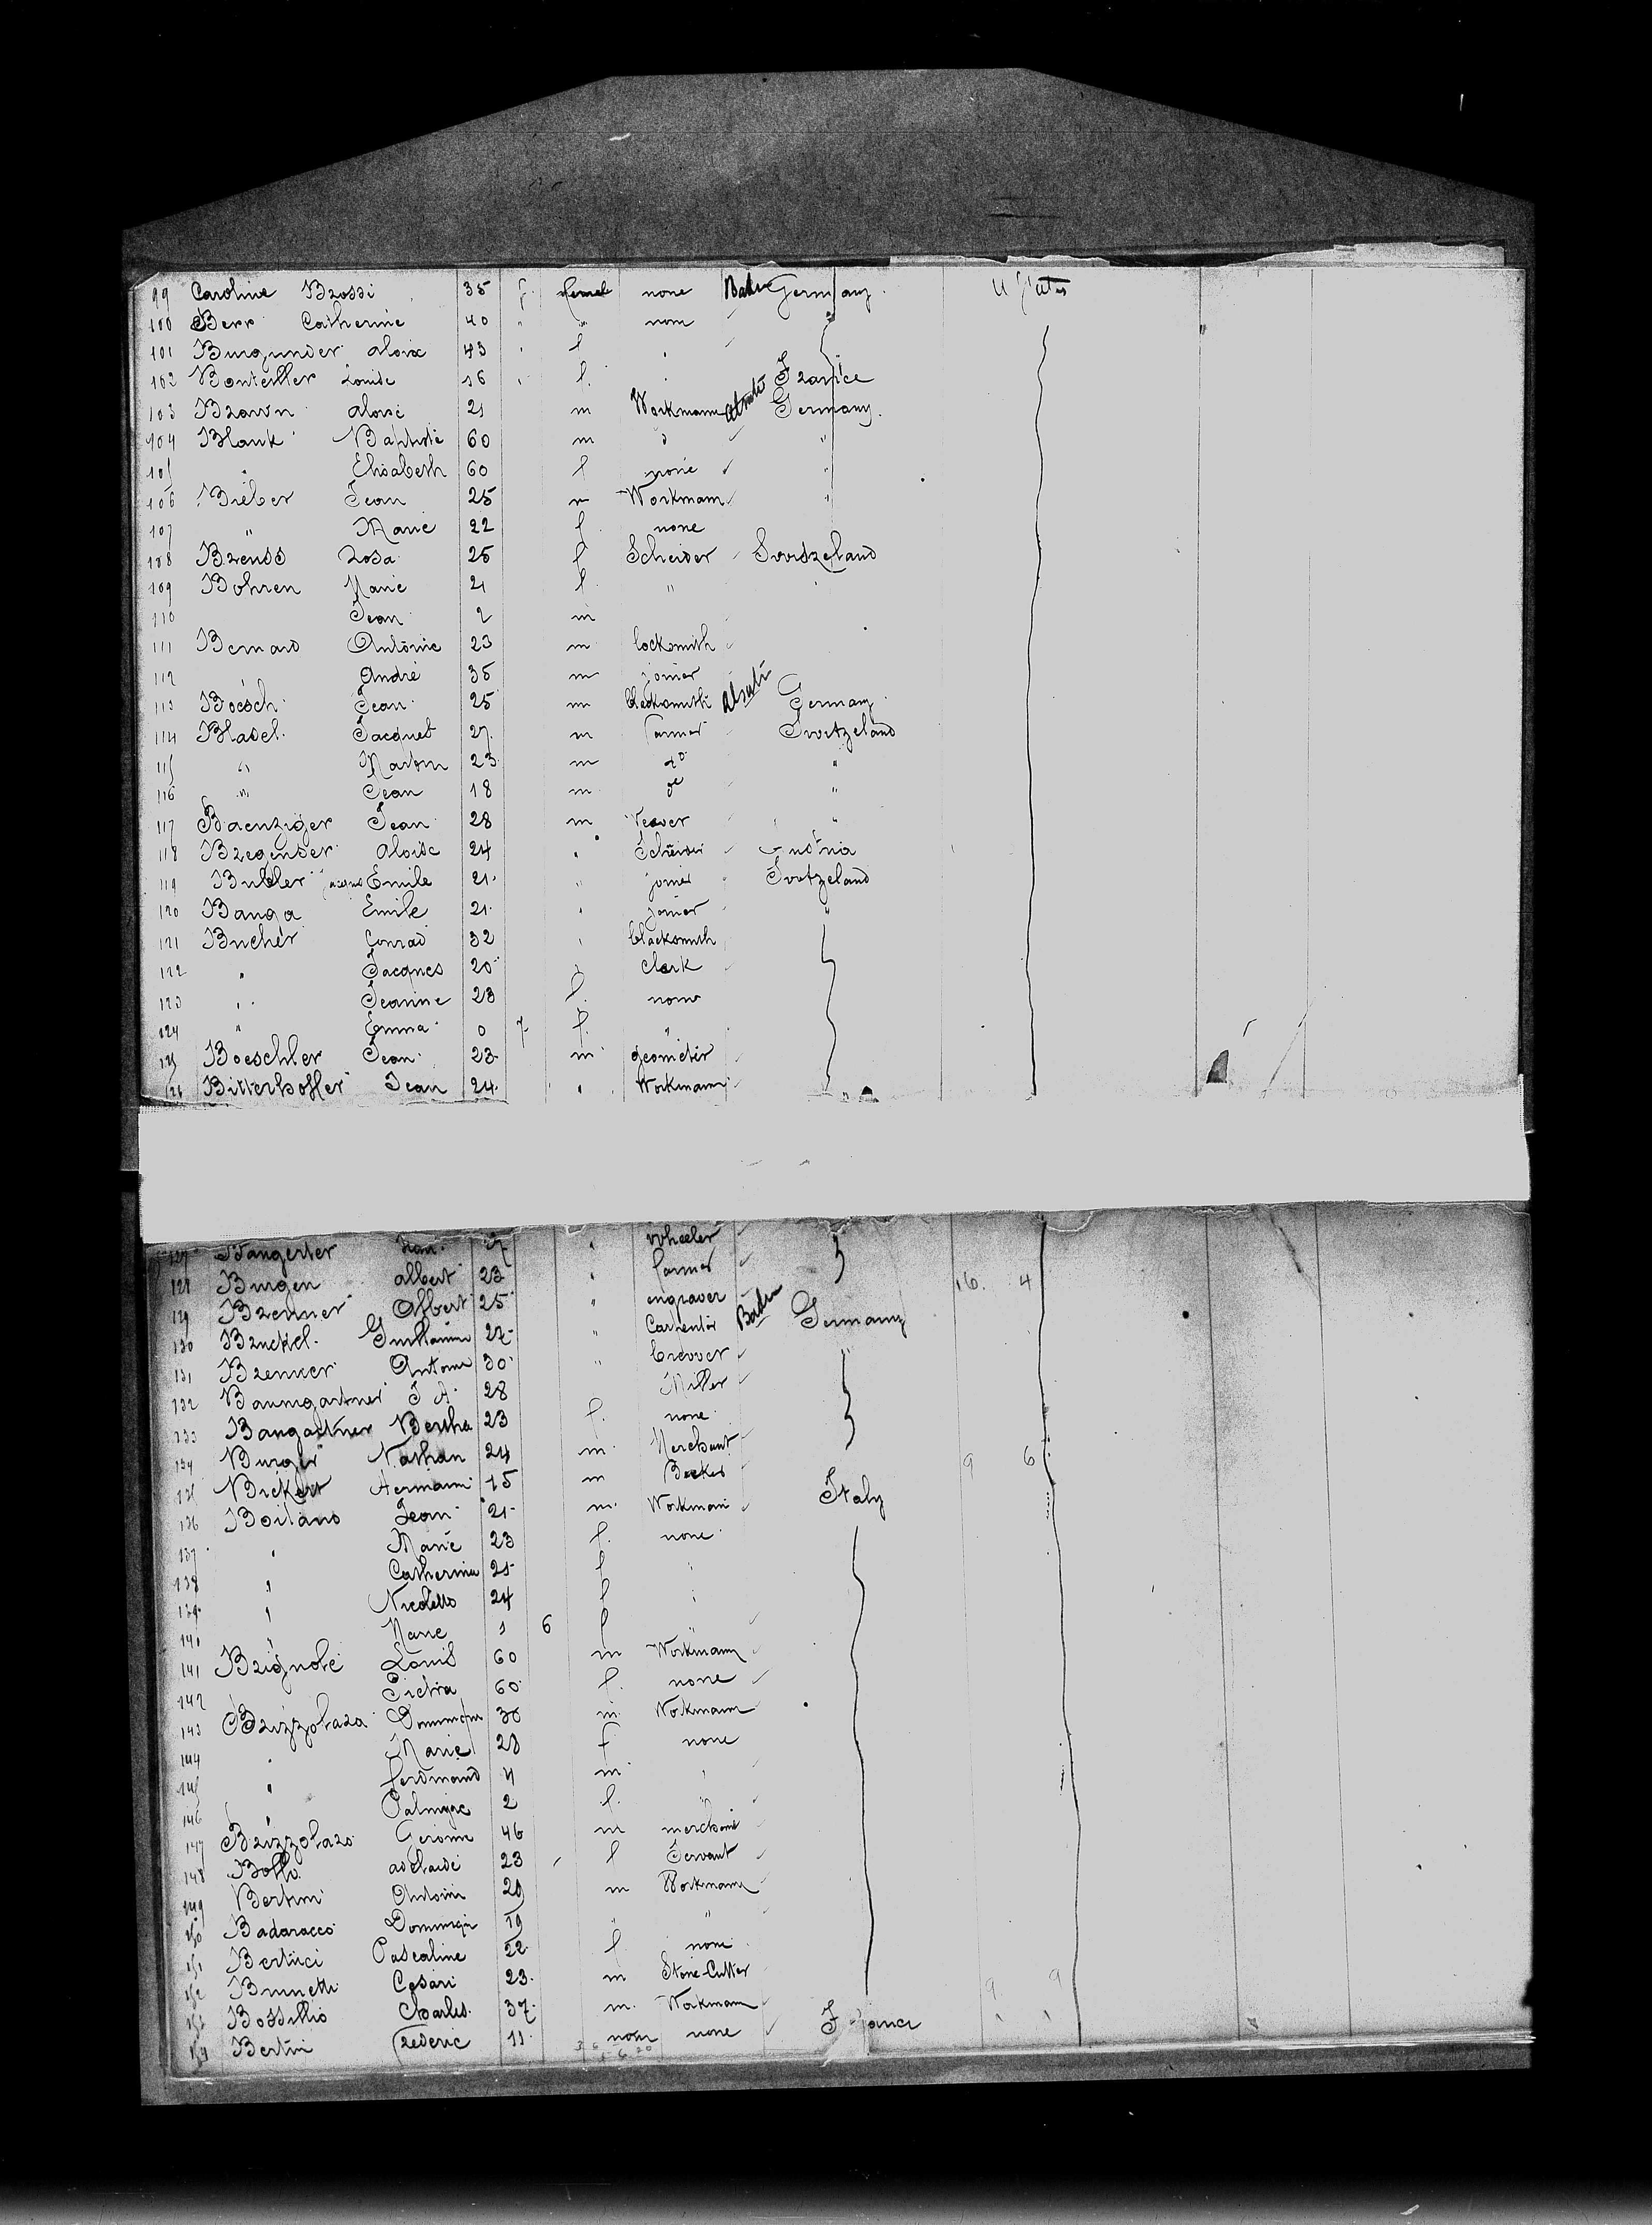 99 Caroline Brossi 35 f. female none Baden Germany. U States
100 Berr Catherine 40 " " none
101 Burgunder aloise 43 f
102 Bonteiller Louise 16 f. France
103 Brawn aloise 21 m Workmann Germany.
104 Blank Baptiste 60 m " "
105 " Elisabeth 60 f none "
106 Bieber Jean 25 m Workmann "
107 " Marie 22 f. none
108 Breuss Rosa 25 f Scheider Switzeland
109 Bohren Marie 21 f. "
110 Jean 2 m
111 Bernard Antonie 23 m locksmith
112 André 35 m joiner
113 Boesch Jean 25 m Germany
114 Blasel. Jacques 27. m farmer Switzeland
115 " Martin 23 m do "
116 " Jean 18 m do "
117 Baenziger Jean 28 m Veaver "
118 Bregenser aloise 24 " Scheider Austria
119 Buhler Jacques Emile 21. " joiner Switzeland
120 Banga Emile 21. " joiner "
121 Bucher Conrad 32 " blacksmith
122 " Jacques 20 " clerk
123 " Jeanne 23 f. none
124 " Emma 0 7 f. "
125 Boeschler Jean 23. m geometer
126 Bitterhoffer Jean 24. " Workmann
127 Bangerter Jean. 27 " Wheeler
128 Burgen albert 23 " farmer 16. 4
129 Brenner Albert 25 " engraver
130 Bruckel. Guillaume 27. " Carpenter Baden Germany
131 Brenner Antoine 30 " brewer "
132 Baumgartner J A. 28 Miller
133 Bangartner Bertha 23 f. none
134 Burger Nathan 24 m. Merchant
135 Bickert Hermann 15 m Becker 9 6
136 Boitano Jean 21. m. Workmann Italy
137 " Marie 23 f. none
138 " Catherine 25 f "
139 " Nicoletto 24 f "
140 " Marie 1 6 f "
141 Brignole Louis 60 m Workmann
142 Pietra 60 f. none
143 Brizzolara Dominique 38 m. Workmann
144 " Marie 28 f none
145 " ferdinand 4 m "
146 " 2 f. "
147 Brizzolaro Gerome 46 m merchant
148 Bollo adelaide 23 f Servant
149 Bertini Antoine 29 m Workmann
150 Badaracco Dominique 19 " "
151 Bertucci Pascaline 22. f none
152 Brunetti Cesari 23. m Stone-Cutter
153 Charles. 37. m. Workmann 9 9
154 Bertin frederic 11. none France